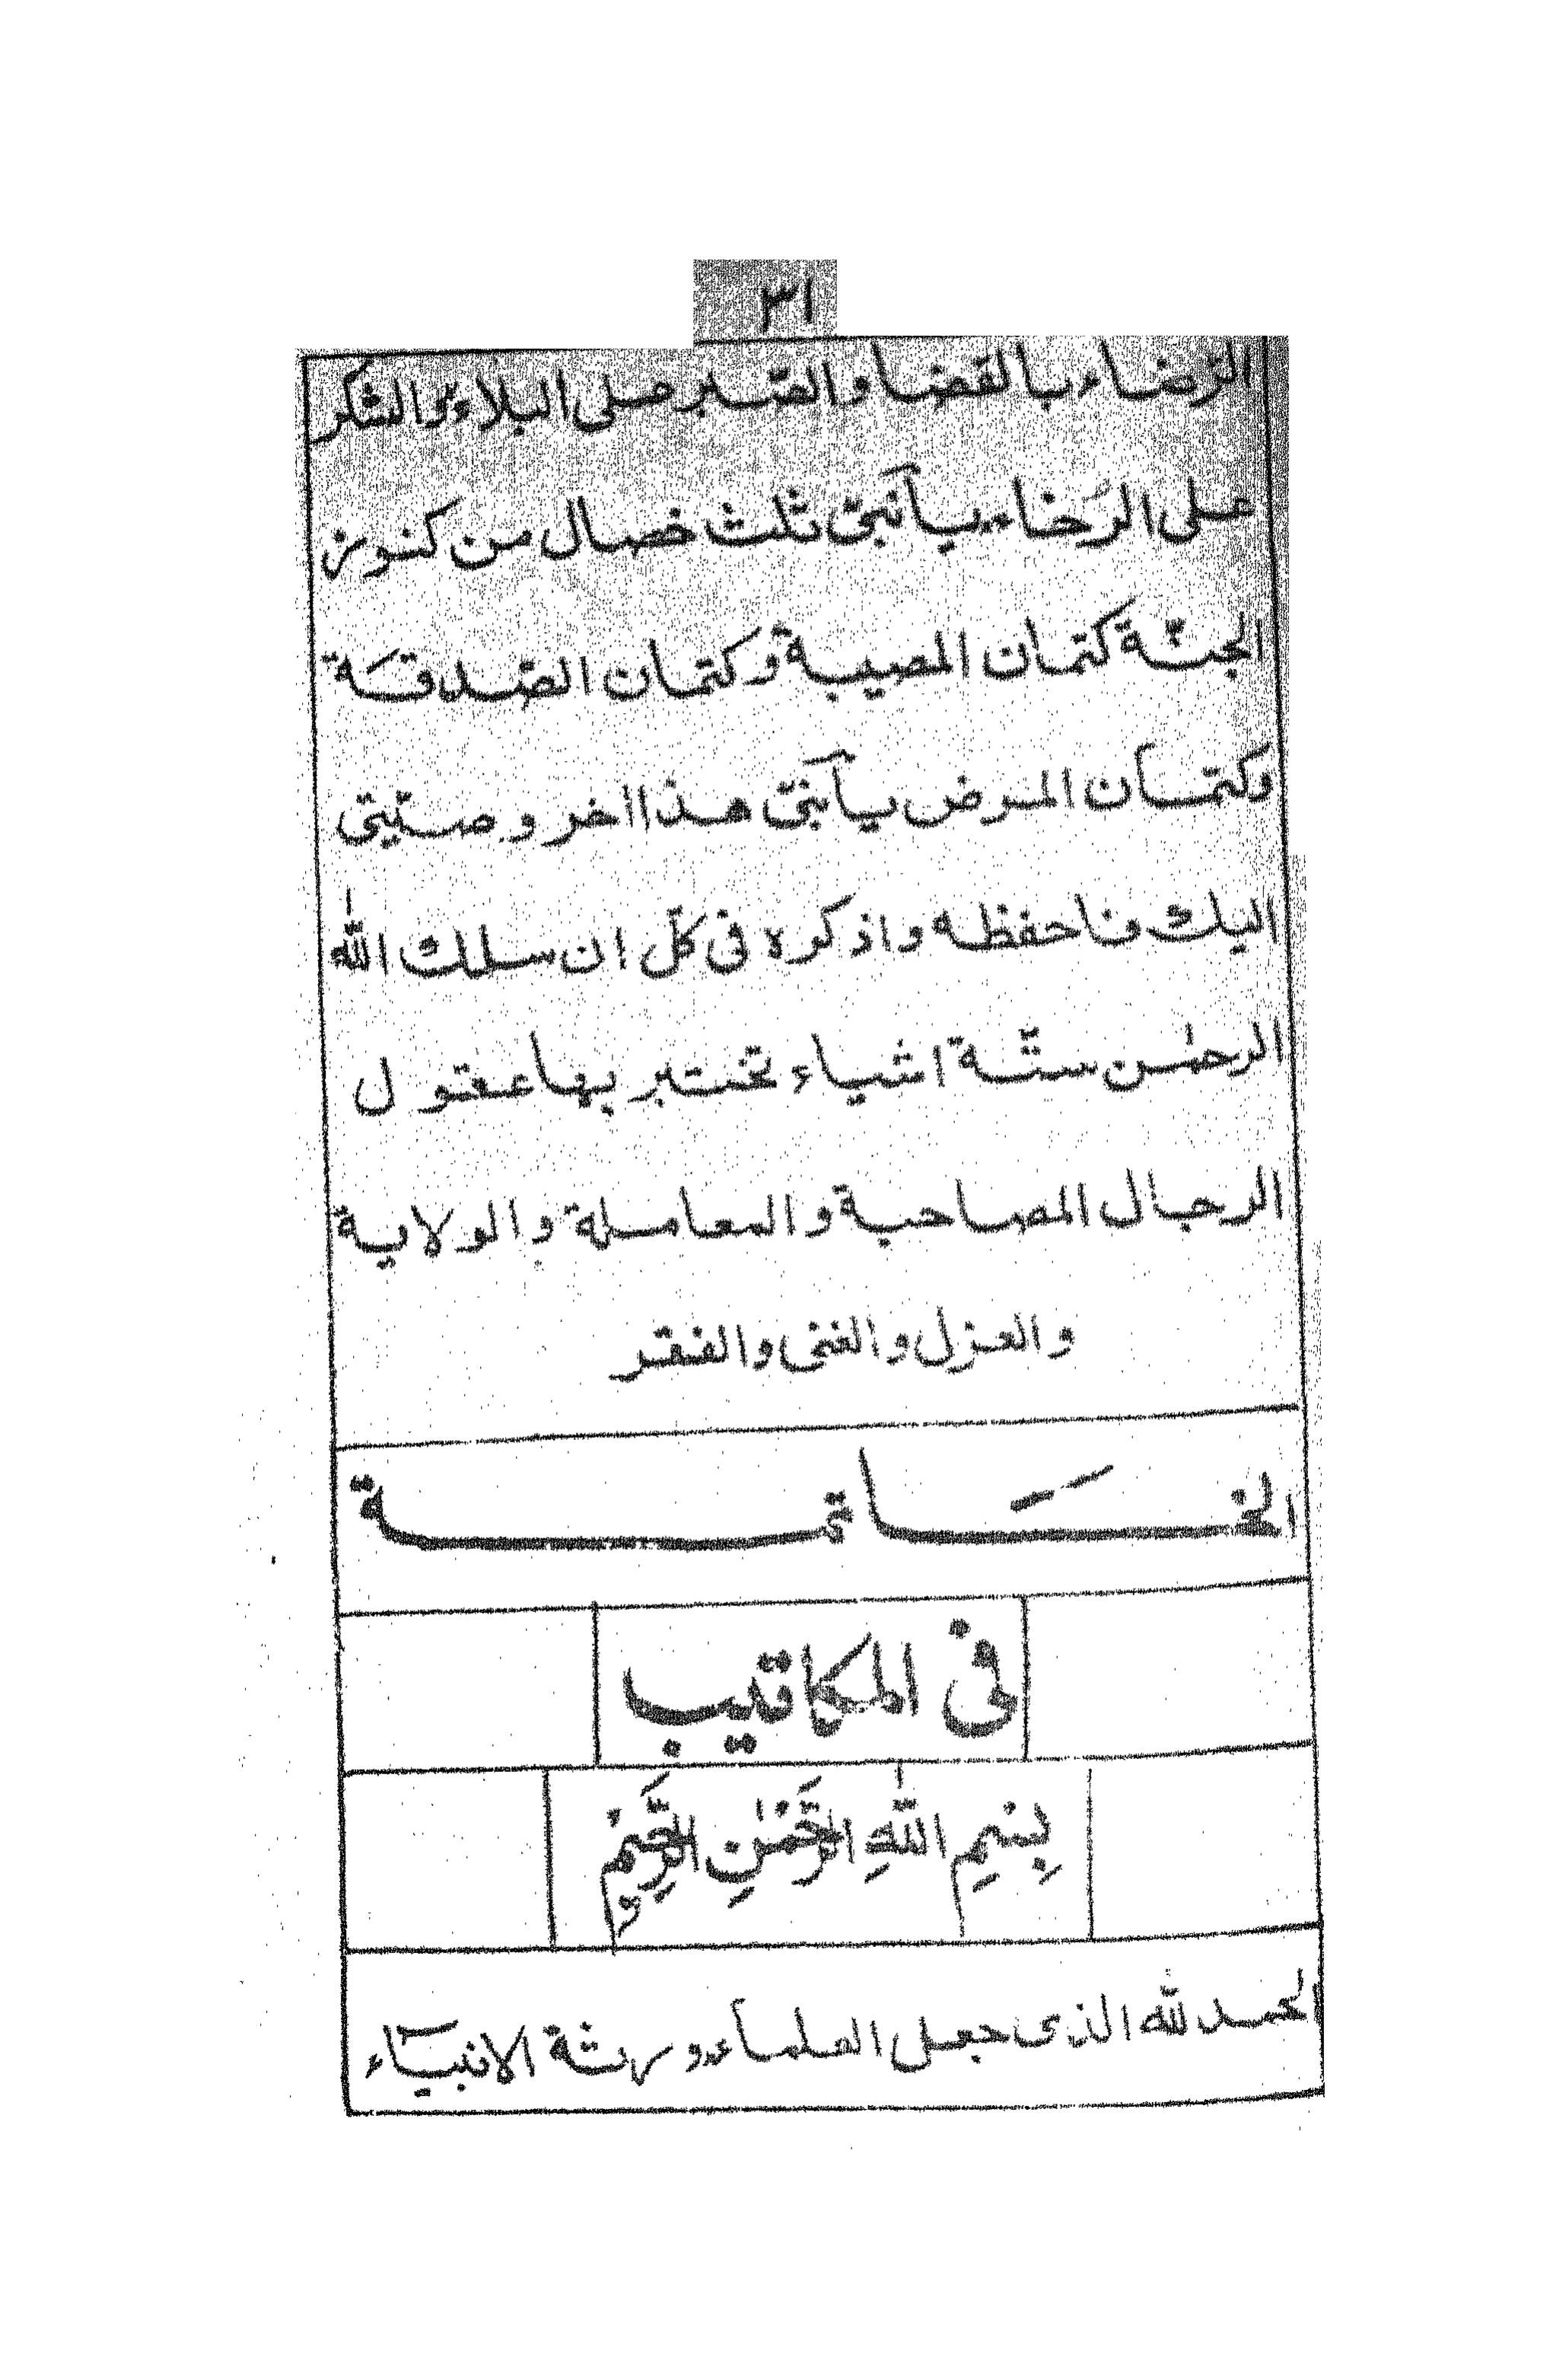 ٣١
الرّضاء بالقضا والصّبر على البلاء والشكر
على الرَخاء يا بُنَىّ ثلث خصال من كنوز
الجنّة كتمان المصيبة وكتمان الصّدقَة
وكتمان المرض يا بُنَىّ هذا اٰخر وصيّتى
اليك فاحفظه واذكره فى كلّ ان سلك اللّٰه
الرحمٰن ستّة اشياء تختبر بها عقول
الرجال المصاحبة والمعاملة والولاية
والعزل والغنى والفقر
الخَاتمة
فى المكاتيب
بِسْمِ اللّٰهِ الرَّحْمٰنِ الرَّحِيْمِ
الحمد للّٰه الذى جعل العلمآء ورثة الانبيَآء